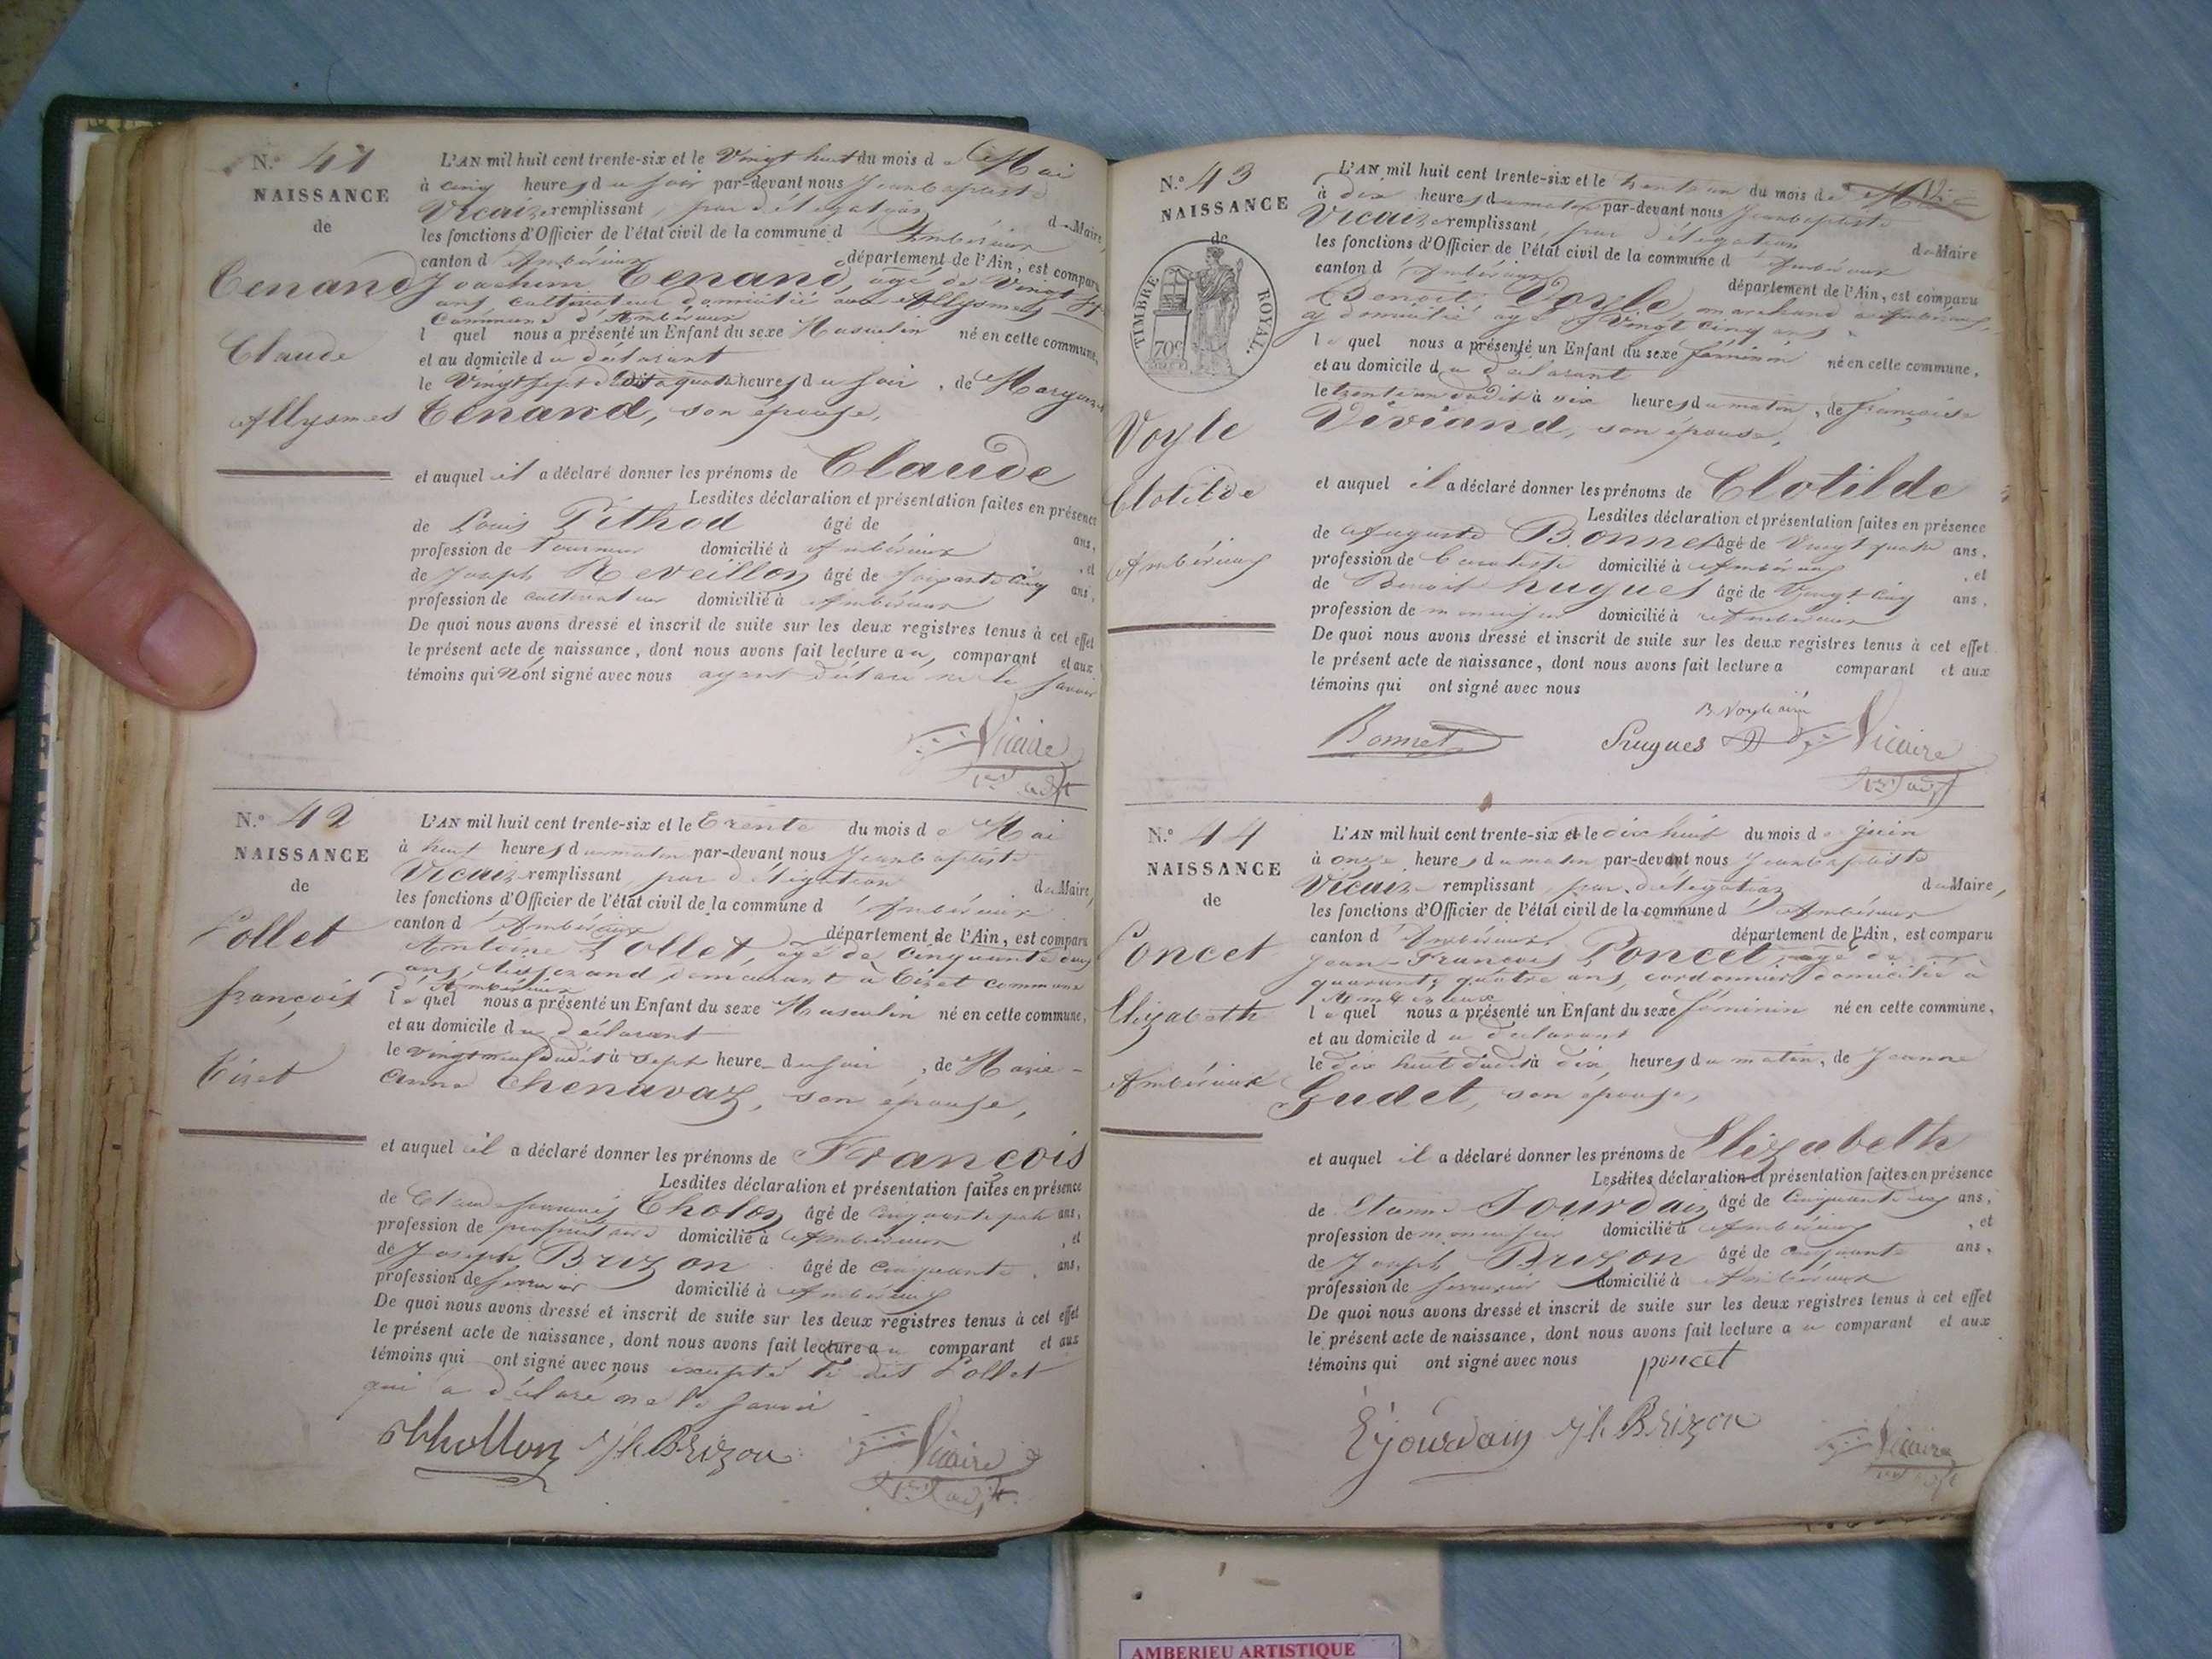 N.º 41
NAISSANCE
de
Tenand
Claude
Allysmes
L'AN mil huit cent trente-six et le Vingt huit du mois de Mai
à cinq heures du soir par-devant nous Jean baptiste
Vicaire remplissant, par délégation du Maire,
les fonctions d'Officier de l'état civil de la commune d'Ambérieux
canton d'Ambérieux département de l'Ain, est comparu
Joachim Tenand, âgé de Vingt
ans, cultivateur domicilié aux Allysmes
Commune d'Ambérieux
lequel nous a présenté un Enfant du sexe Masculin né en cette commune,
et au domicile du déclarant
le Vingt sept dudit à quatre heures du soir, de
Tenand, son épouse,
et auquel il a déclaré donner les prénoms de Claude
Lesdites déclaration et présentation faites en présence
de Louis Pithod âgé de ans,
profession de Tourneur domicilié à Ambérieux, et
de Joseph Reveillon âgé de soixante cinq ans,
profession de cultivateur domicilié à Ambérieux
De quoi nous avons dressé et inscrit de suite sur les deux registres tenus à cet effet
le présent acte de naissance, dont nous avons fait lecture au comparant et aux
témoins qui n'ont signé avec nous ayant déclaré ne le savoir
Vicaire
1er adjt
N.º 42
NAISSANCE
de
Lollet
françois
Tiret
L'AN mil huit cent trente-six et le Trente du mois de Mai
à huit heures du matin par-devant nous Jean baptiste
Vicaire remplissant, par délégation du Maire,
les fonctions d'Officier de l'état civil de la commune d'Ambérieux
canton d'Ambérieux département de l'Ain, est comparu
Antoine Lollet, âgé de cinquante
ans, tisserand demeurant à Tiret commune
d'Ambérieux
lequel nous a présenté un Enfant du sexe Masculin né en cette commune,
et au domicile du déclarant
le vingt neuf dudit à sept heure du soir, de Marie-
anne Chenavaz, son épouse,
et auquel il a déclaré donner les prénoms de François
Lesdites déclaration et présentation faites en présence
de Claude françois Cholon âgé de cinquante ans,
profession de propriétaire domicilié à Ambérieux, et
de Joseph Brizon âgé de cinquante ans,
profession de serrurier domicilié à Ambérieux
De quoi nous avons dressé et inscrit de suite sur les deux registres tenus à cet effet
le présent acte de naissance, dont nous avons fait lecture au comparant et aux
témoins qui ont signé avec nous excepté le dit Lollet
qui a déclaré ne le savoir
Chollon Jh Brizon Vicaire
1er adjt
N.º 43
NAISSANCE
de
TIMBRE ROYAL.
70c
Voyle
Clotilde
Ambérieux
L'AN mil huit cent trente-six et le trente un du mois de Mai
à dix heures du matin par-devant nous Jean baptiste
Vicaire remplissant, par délégation du Maire
les fonctions d'Officier de l'état civil de la commune d'Ambérieux
canton d'Ambérieux département de l'Ain, est comparu
Benoit Voyle, marchand à Ambérieux,
y domicilié âgé de Vingt cinq ans
lequel nous a présenté un Enfant du sexe féminin né en cette commune,
et au domicile du déclarant
le trente un dudit à six heures du matin, de françoise
Viviand, son épouse,
et auquel il a déclaré donner les prénoms de Clotilde
Lesdites déclaration et présentation faites en présence
de Auguste Bonnet âgé de Vingt quatre ans,
profession de domicilié à Ambérieux, et
de Benoit hugues âgé de Vingt cinq ans,
profession de menuisier domicilié à Ambérieux
De quoi nous avons dressé et inscrit de suite sur les deux registres tenus à cet effet
le présent acte de naissance, dont nous avons fait lecture a comparant et aux
témoins qui ont signé avec nous
B Voyle ainé
Bonnet Hugues Vicaire
1er adjt
N.º 44
NAISSANCE
de
Poncet
Elizabeth
Ambérieux
L'AN mil huit cent trente-six et le dix huit du mois de juin
à onze heures du matin par-devant nous Jean baptiste
Vicaire remplissant, par délégation du Maire,
les fonctions d'Officier de l'état civil de la commune d'Ambérieux
canton d'Ambérieux, département de l'Ain, est comparu
Jean-Francois Poncet, âgé de
quarante quatre ans, cordonnier domicilié à
Ambérieux
lequel nous a présenté un Enfant du sexe féminin né en cette commune,
et au domicile du déclarant
le dix huit dudit à dix heures du matin, de Jeanne
Gudet, son épouse,
et auquel il a déclaré donner les prénoms de Elizabeth
Lesdites déclaration et présentation faites en présence
de Etienne Jourdain âgé de Cinquante ans,
profession de menuisier domicilié à Ambérieux, et
de Joseph Brizon âgé de cinquante ans,
profession de serrurier domicilié à Ambérieux
De quoi nous avons dressé et inscrit de suite sur les deux registres tenus à cet effet
le présent acte de naissance, dont nous avons fait lecture au comparant et aux
témoins qui ont signé avec nous poncet
E jourdain Jh Brizon Vicaire
1er adjt
AMBERIEU ARTISTIQUE